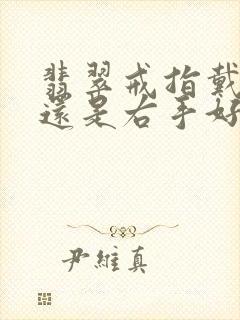 翡翠戒指戴
還是右手好
尹維真